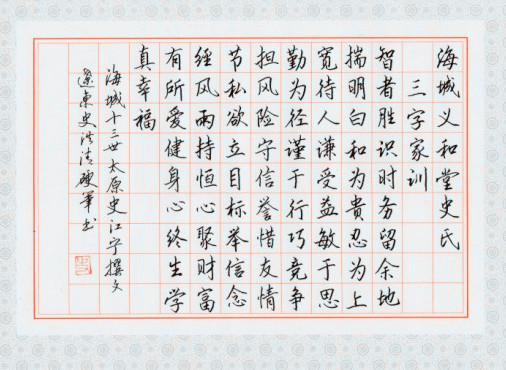 海城义和堂史氏
三字家训
智者胜识时务留余地
揣明白和为贵忍为上
宽待人谦受益敏于思
勤为径谨于行巧竞争
担风险守信誉惜友情
节私欲立目标举信念
经风雨持恒心聚财富
有所爱健身心终生学
真幸福
海城十三世太原史江宁撰文
辽东史洪清硬笔书